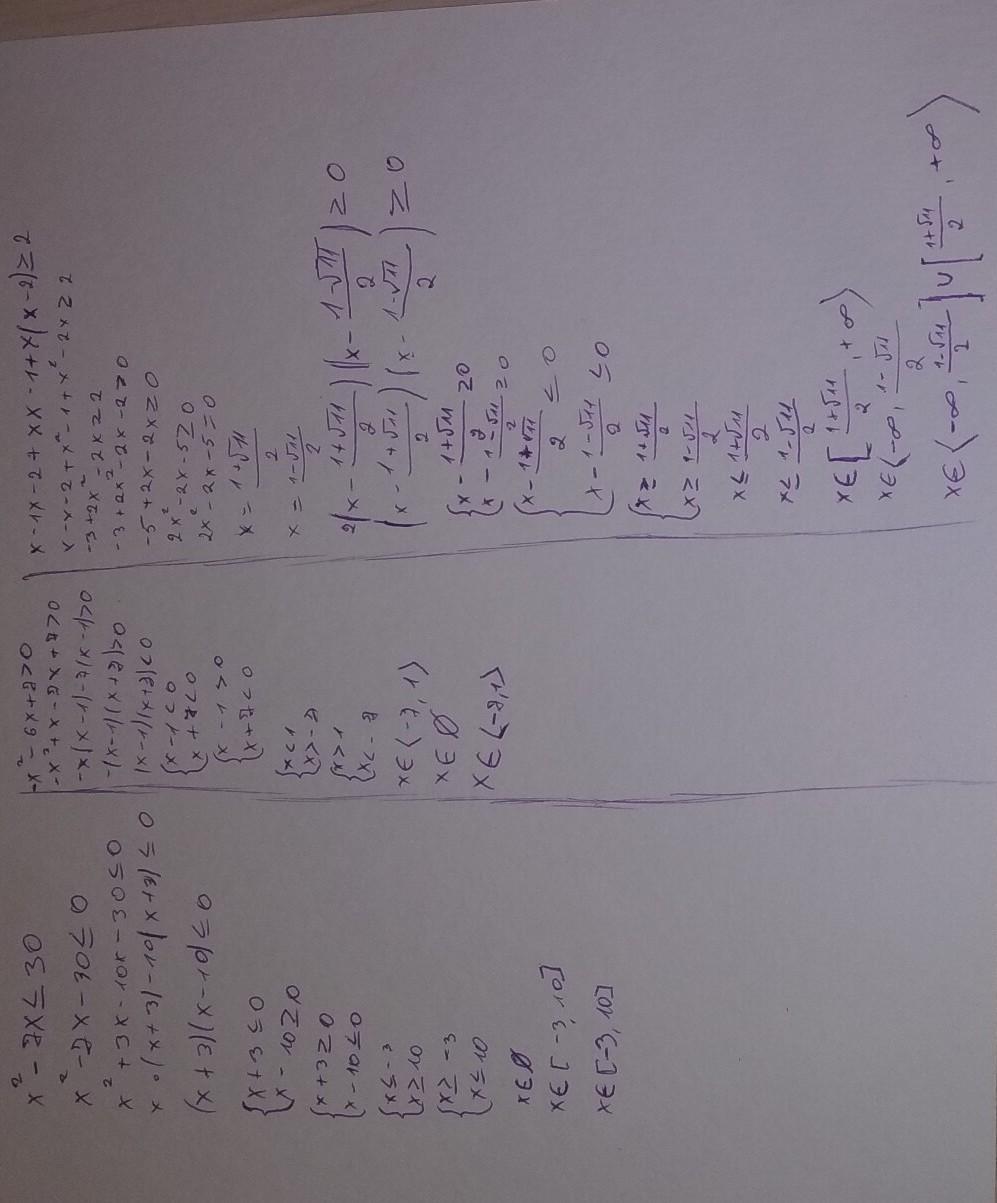 x² - 7x ≤ 30
x² - 7x - 30 ≤ 0
x² + 3x - 10x - 30 ≤ 0
x · (x + 3) - 10(x + 3) ≤ 0
(x + 3)(x - 10) ≤ 0
{x + 3 ≤ 0
{x - 10 ≥ 0
{x + 3 ≥ 0
{x - 10 ≤ 0
{x ≤ -3
{x ≥ 10
{x ≥ -3
{x ≤ 10
x ∈ Ø
x ∈ [-3, 10]
x ∈ [-3, 10]
-x² - 6x + 7 > 0
-x² + x - 7x + 7 > 0
-x(x - 1) - 7(x - 1) > 0
-(x - 1)(x + 7) > 0
(x - 1)(x + 7) < 0
{x - 1 < 0
{x + 7 < 0
{x - 1 > 0
{x + 7 < 0
{x < 1
{x > -7
{x > 1
{x < -7
x ∈ ⟨-7, 1⟩
x ∈ Ø
x ∈ ⟨-7, 1⟩
x - 1x - 2 + xx - 1 + x(x - 2) ≥ 2
x - x - 2 + x² - 1 + x² - 2x ≥ 2
-3 + 2x² - 2x ≥ 2
-3 + 2x² - 2x - 2 ≥ 0
-5 + 2x - 2x ≥ 0
2x² - 2x - 5 ≥ 0
2x² - 2x - 5 = 0
x = 1+√11/2
x = 1-√11/2
2(x - 1+√11/2)(x - 1-√11/2) ≥ 0
(x - 1+√11/2)(x - 1-√11/2) ≥ 0
{x - 1+√11/2 ≥ 0
{x - 1-√11/2 ≥ 0
{x - 1+√11/2 ≤ 0
{x - 1-√11/2 ≤ 0
{x ≥ 1+√11/2
{x ≥ 1-√11/2
x ≤ 1+√11/2
x ≤ 1-√11/2
x ∈ [1+√11/2, +∞⟩
x ∈ ⟨-∞, 1-√11/2
x ∈ ⟨-∞, 1-√11/2] ∪ [1+√11/2, +∞⟩